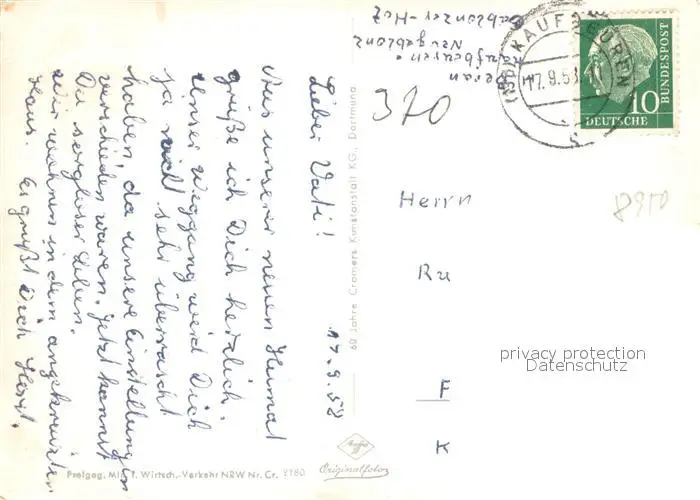 17.9.58
Lieber Vati!
Aus unserer neuen Heimat
grüße ich Dich herzlich.
Unser Weggang wird Dich
ja nicht sehr überrascht
haben, da unsere Einstellungen
verschieden waren. Jetzt kannst
Du sorgloser leben.
Wir wohnen in dem angekreuzten
Haus. Es grüßt Dich Horst.
Kaufbeuren-
Neugablonz
Gablonzer-Hof
370
KAUFBEUREN
17.9.58
10
DEUTSCHE
BUNDESPOST
8950
Herrn
Ru
F
K
privacy protection
Datenschutz
60 Jahre Cramers Kunstanstalt KG., Dortmund
Agfa
Originalfoto
Freigeg. Min. f. Wirtsch.-Verkehr NRW Nr. Cr. 2180